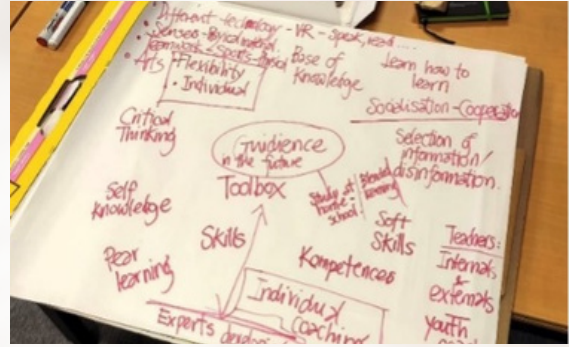 Different technology - VR - speak, read ....
Senses -
Teamwork
Arts
• Flexibility
• Individual
Base of
Knowledge
Learn how to
learn
Socialisation - Cooperation
Critical
Thinking
Guidience
in the future
Toolbox
Selection of
information/
disinformation.
Study at
home -
school
Blended
learning
Self
knowledge
Skills
Soft
Skills
Kompetences
Teachers:
Internals
&
externals
youth
Pear
learning
Individual
coaching
Experts